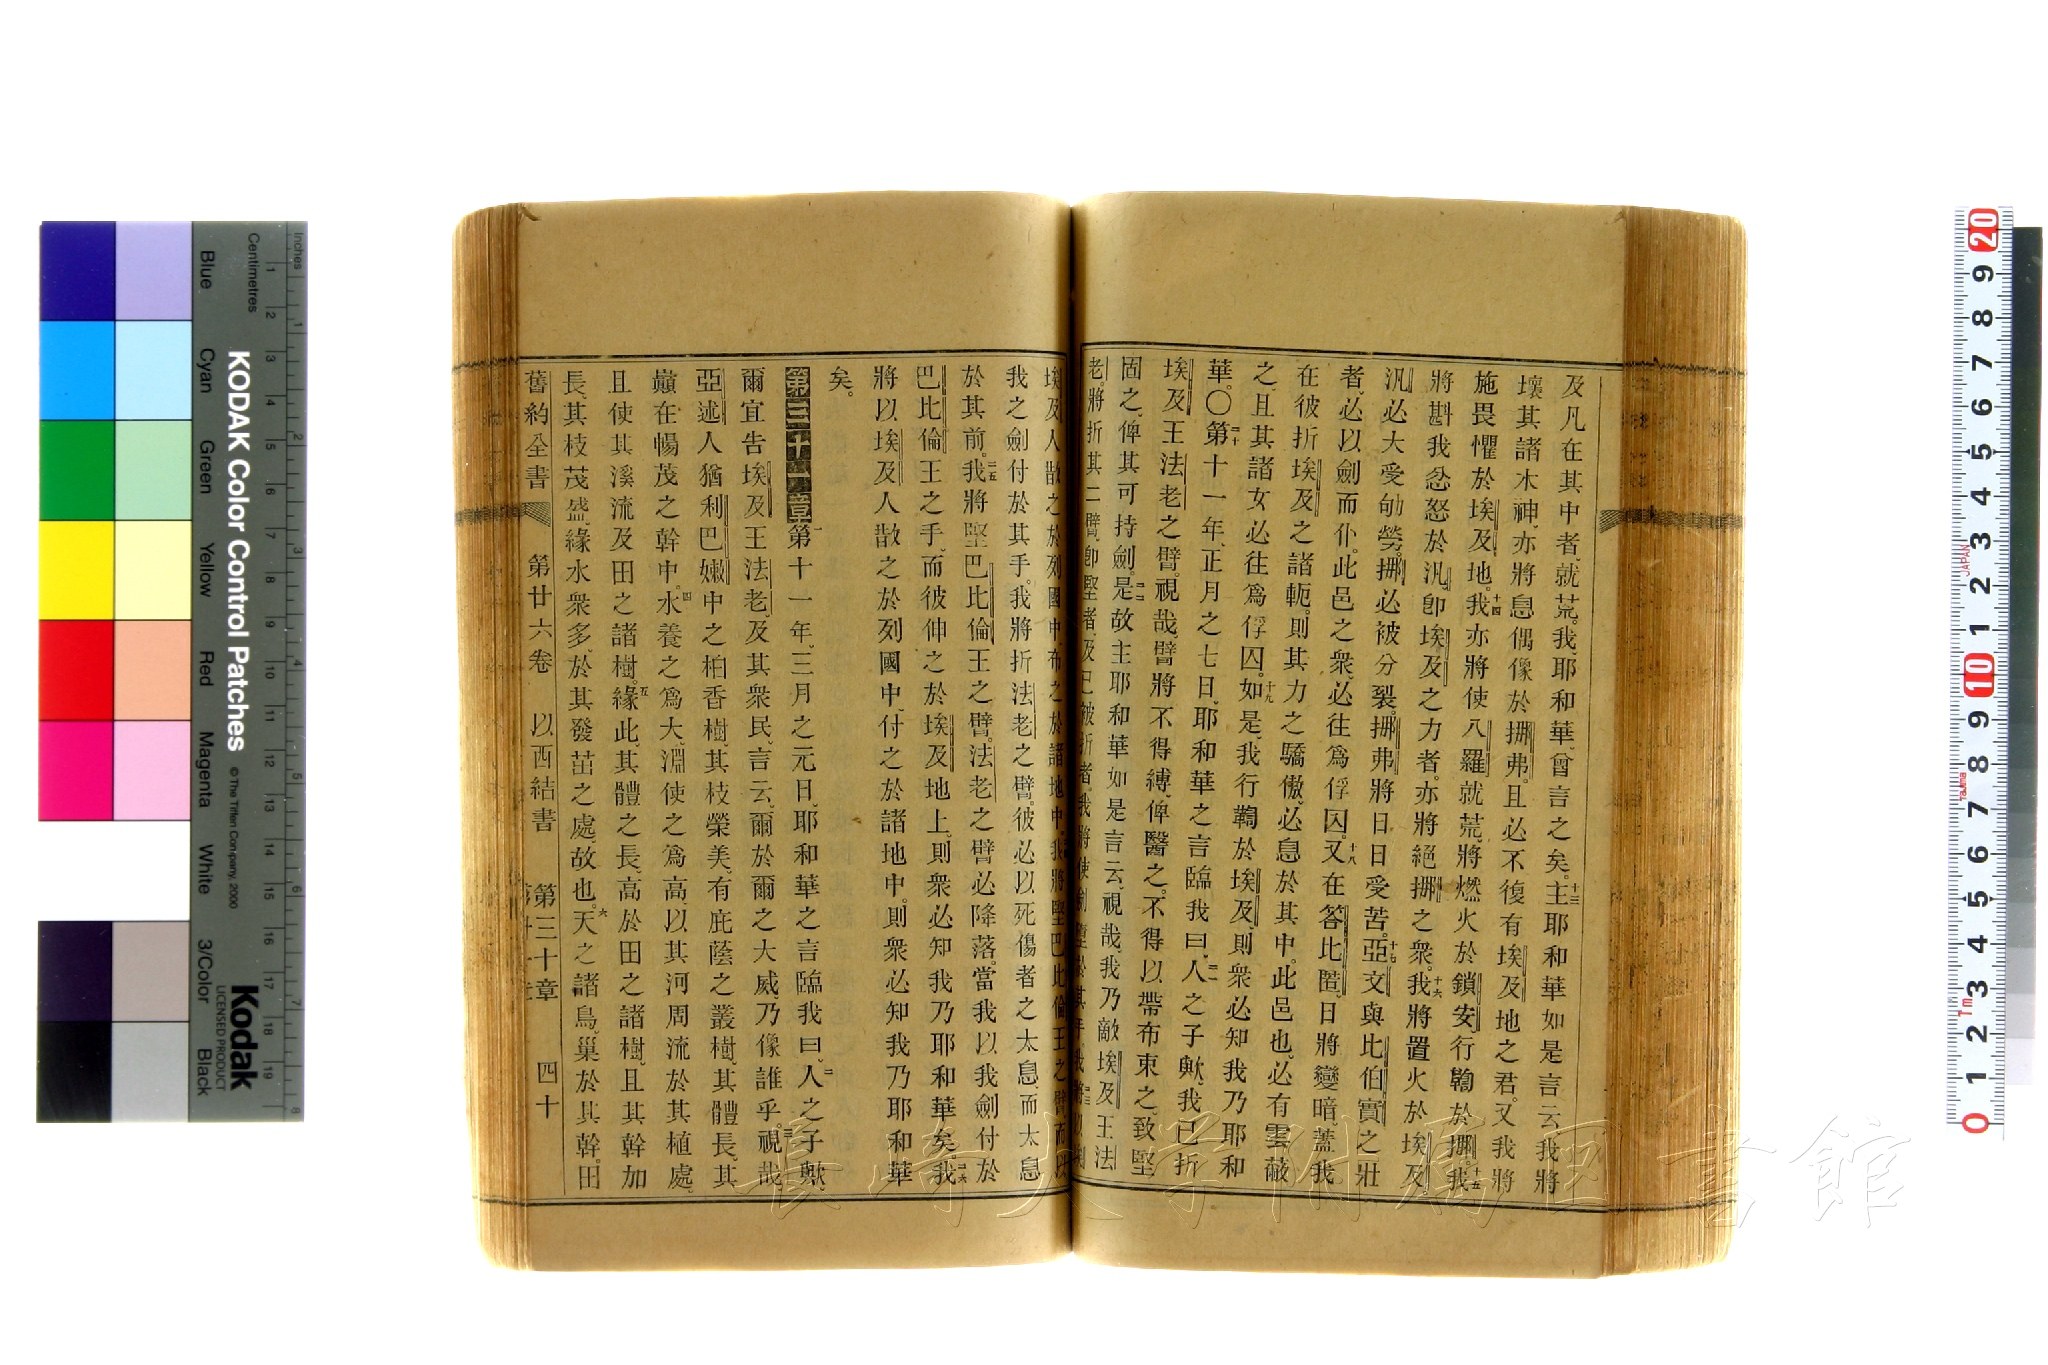 及凡在其中者、就荒。我耶和華、曾言之矣。十三主耶和華如是言云、我將
壞其諸木神、亦將息偶像於挪弗。且必不復有埃及地之君。又我將
施畏懼於埃及地。十四我亦將使八羅就荒、將燃火於鎖安、行鞫於挪。十五我
將斟我忿怒於汎、卽埃及之力者。亦將絕挪之衆。十六我將置火於埃及。
汎必大受劬勞。挪必被分裂。挪弗將日日受苦。十七亞文與比伯實之壯
者、必以劍而仆。此邑之衆、必往爲俘囚。十八又在答比匿、日將變暗。蓋我
在彼折埃及之諸軛。則其力之驕傲、必息於其中。此邑也、必有雲蔽
之、且其諸女必往爲俘囚。十九如是、我行鞫於埃及、則衆必知我乃耶和
華。〇二十第十一年、正月之七日、耶和華之言臨我曰、二一人之子歟、我已折
埃及王法老之臂。視哉、臂將不得縛、俾醫之。不得以帶布束之、致堅
固之、俾其可持劍。二二是故主耶和華如是言云、視哉、我乃敵埃及王法
老。將折其二臂、卽堅者、及已被折者。我將使劍墮於其手。二三我將
埃及人散之於列國中、布之於諸地中。二四我將堅巴比倫王之臂、而以
我之劍付於其手。我將折法老之臂。彼必以死傷者之太息、而太息
於其前。二五我將堅巴比倫王之臂。法老之臂必降落。當我以我劍付於
巴比倫王之手、而彼伸之於埃及地上、則衆必知我乃耶和華矣。二六我
將以埃及人散之於列國中、付之於諸地中。則衆必知我乃耶和華
矣。
第三十一章 一第十一年、三月之元日、耶和華之言臨我曰、二人之子歟、
爾宜告埃及王法老、及其衆民、言云、爾於爾之大威、乃像誰乎。三視哉、
亞述人猶利巴嫩中之柏香樹、其枝榮美、有庇蔭之叢樹、其體長、其
巔在暢茂之幹中。四水養之爲大、淵使之爲高、以其河周流於其植處。
且使其溪流及田之諸樹。五緣此、其體之長、高於田之諸樹、且其幹加
長、其枝茂盛、緣水衆多、於其發茁之處、故也。六天之諸鳥、巢於其幹。田
舊約全書 第廿六卷 以西結書 第三十章 四十
KODAK Color Control Patches
© The Tiffen Company, 2000
Kodak
LICENSED PRODUCT
Inches
Centimetres
Blue
Cyan
Green
Yellow
Red
Magenta
White
3/Color
Black
長崎大学附属図書館
JAPAN
Tajima